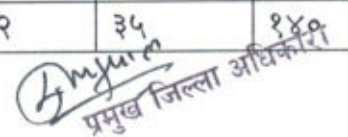 २ ३५ १४०
प्रमुख जिल्ला अधिकारी